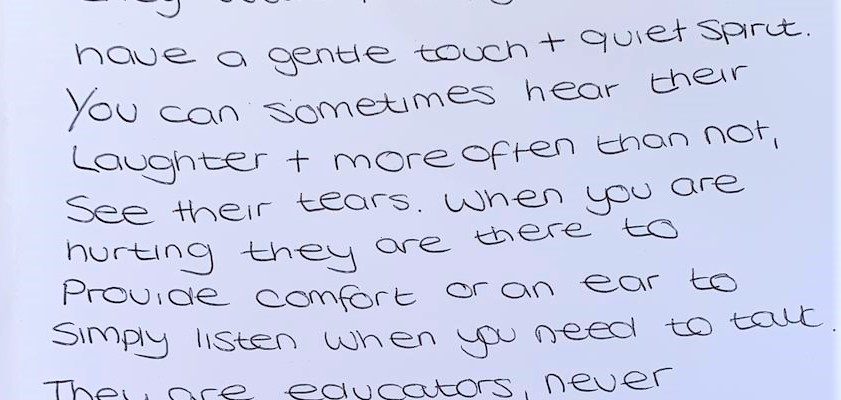 have a gentle touch + quiet spirit.
You can sometimes hear their
Laughter + more often than not,
See their tears. When you are
hurting they are there to
Provide comfort or an ear to
Simply listen when you need to talk.
They are educators, never